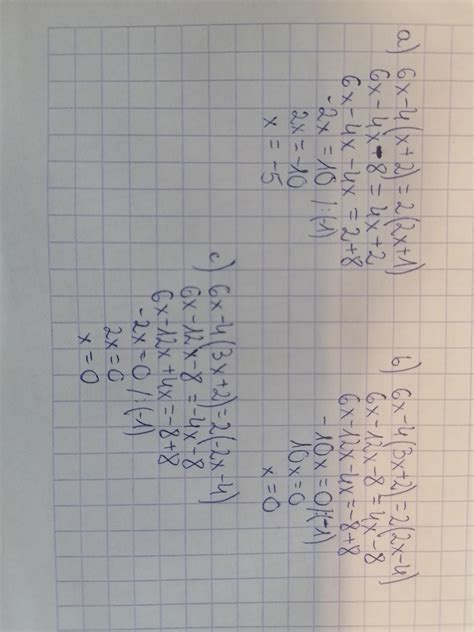 a) 6x-4(x+2)=2(2x+1)
6x-4x-8=4x+2
6x-4x-4x=2+8
-2x=10 /:(-1)
2x=-10
x=-5
b) 6x-4(3x+2)=2(2x-4)
6x-12x-8=4x-8
6x-12x-4x=-8+8
-10x=0/:(-1)
10x=0
x=0
c) 6x-4(3x+2)=2(-2x-4)
6x-12x-8=-4x-8
6x-12x+4x=-8+8
-2x=0 /:(-1)
2x=0
x=0